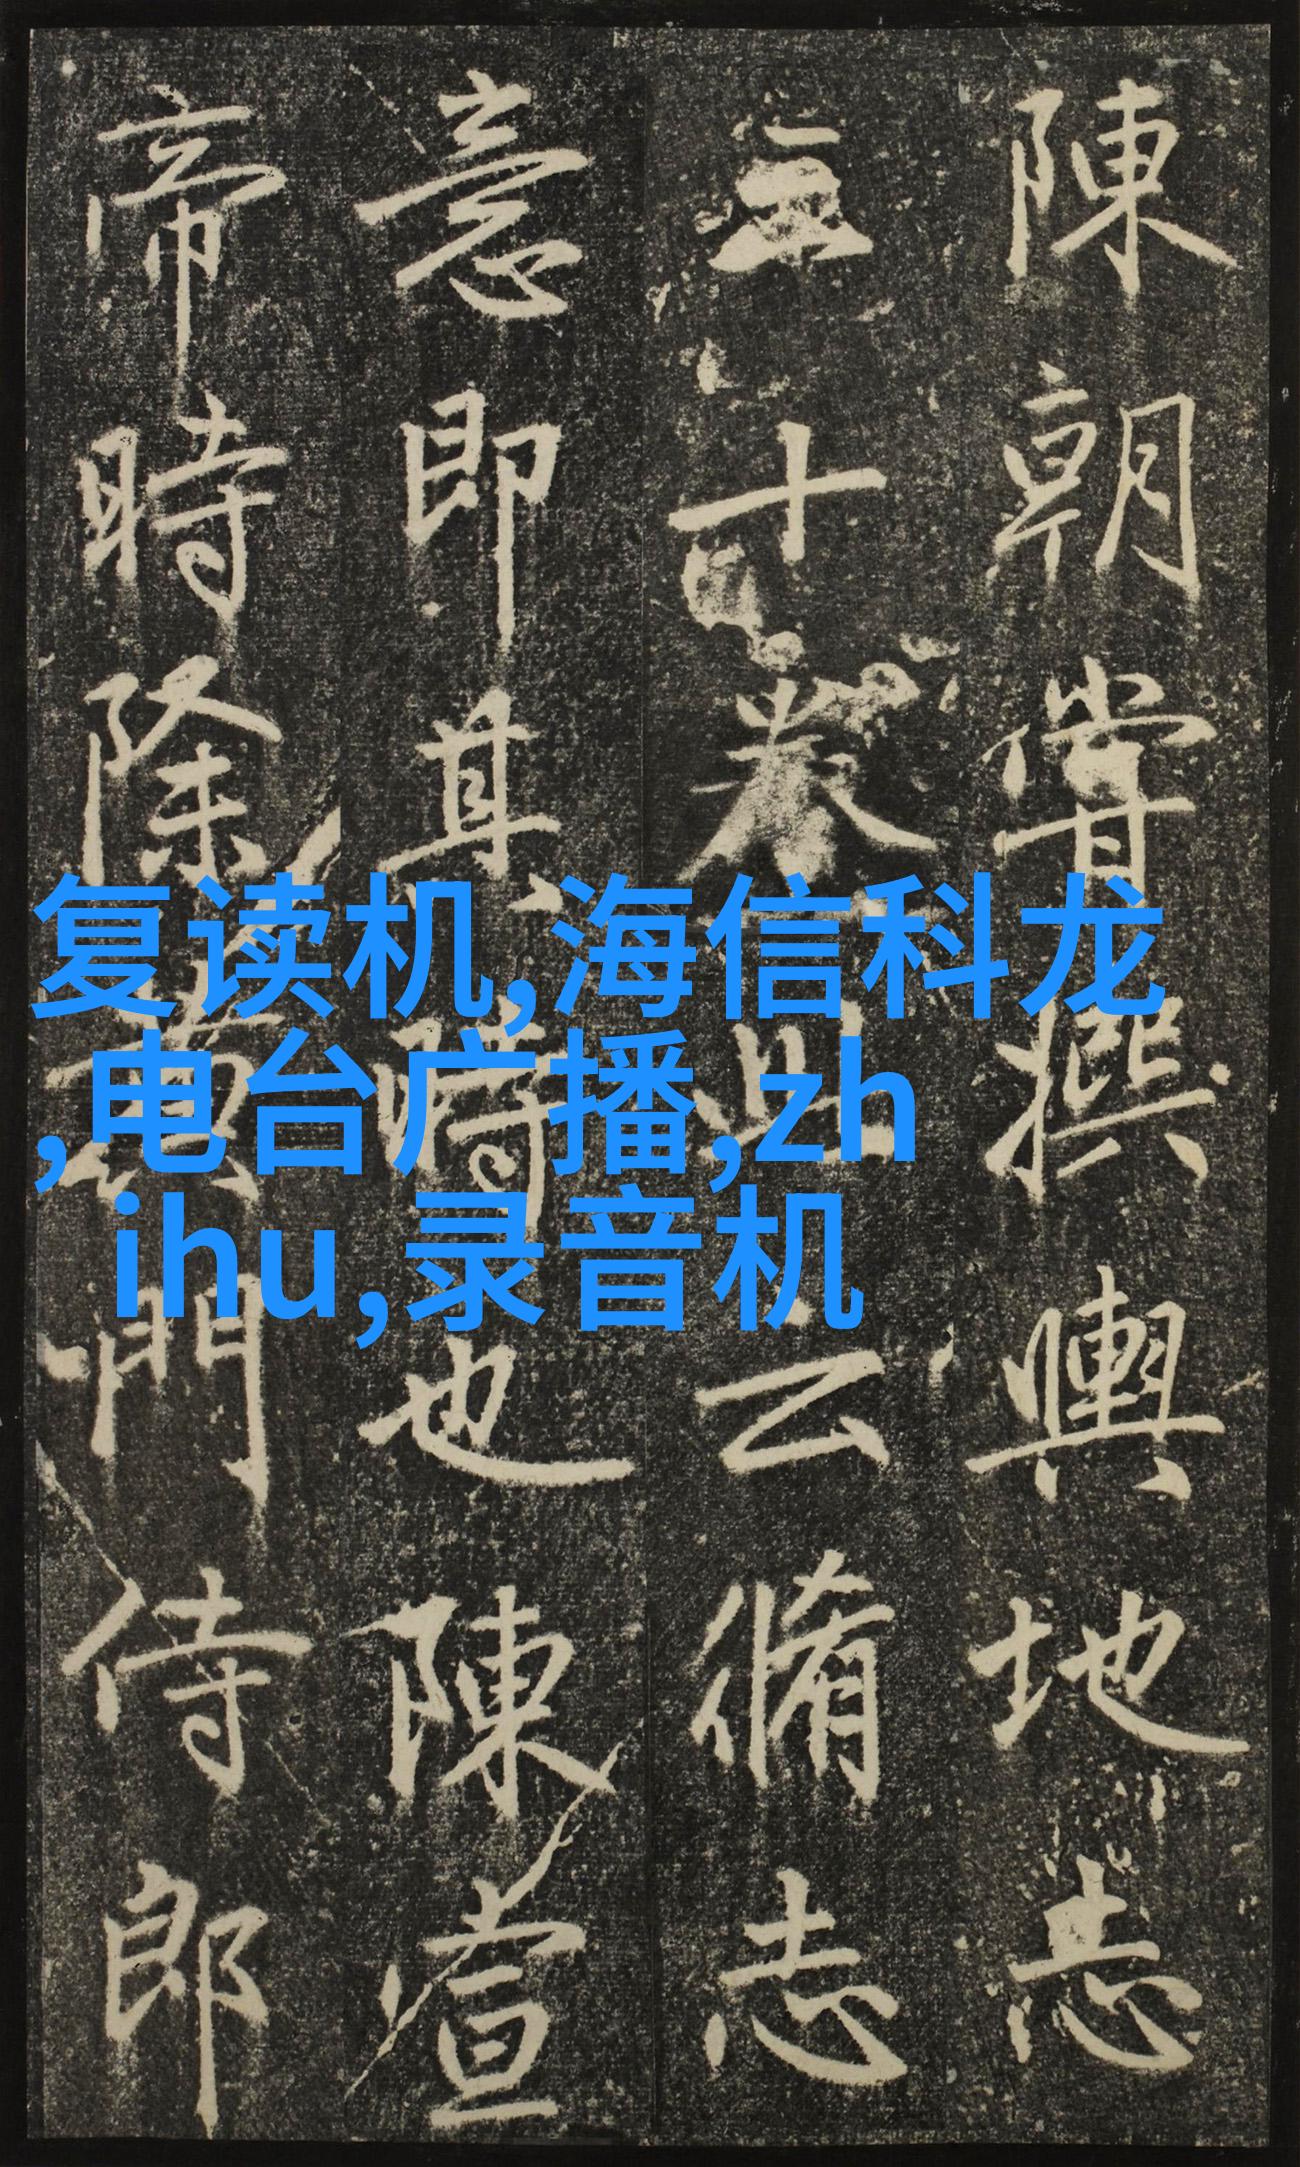 陳朝嘗撰輿地志
三十卷此云脩志
意即其時也陳宣
帝時除黄門侍郎
复读机,海信科龙
,电台广播,zh
ihu,录音机